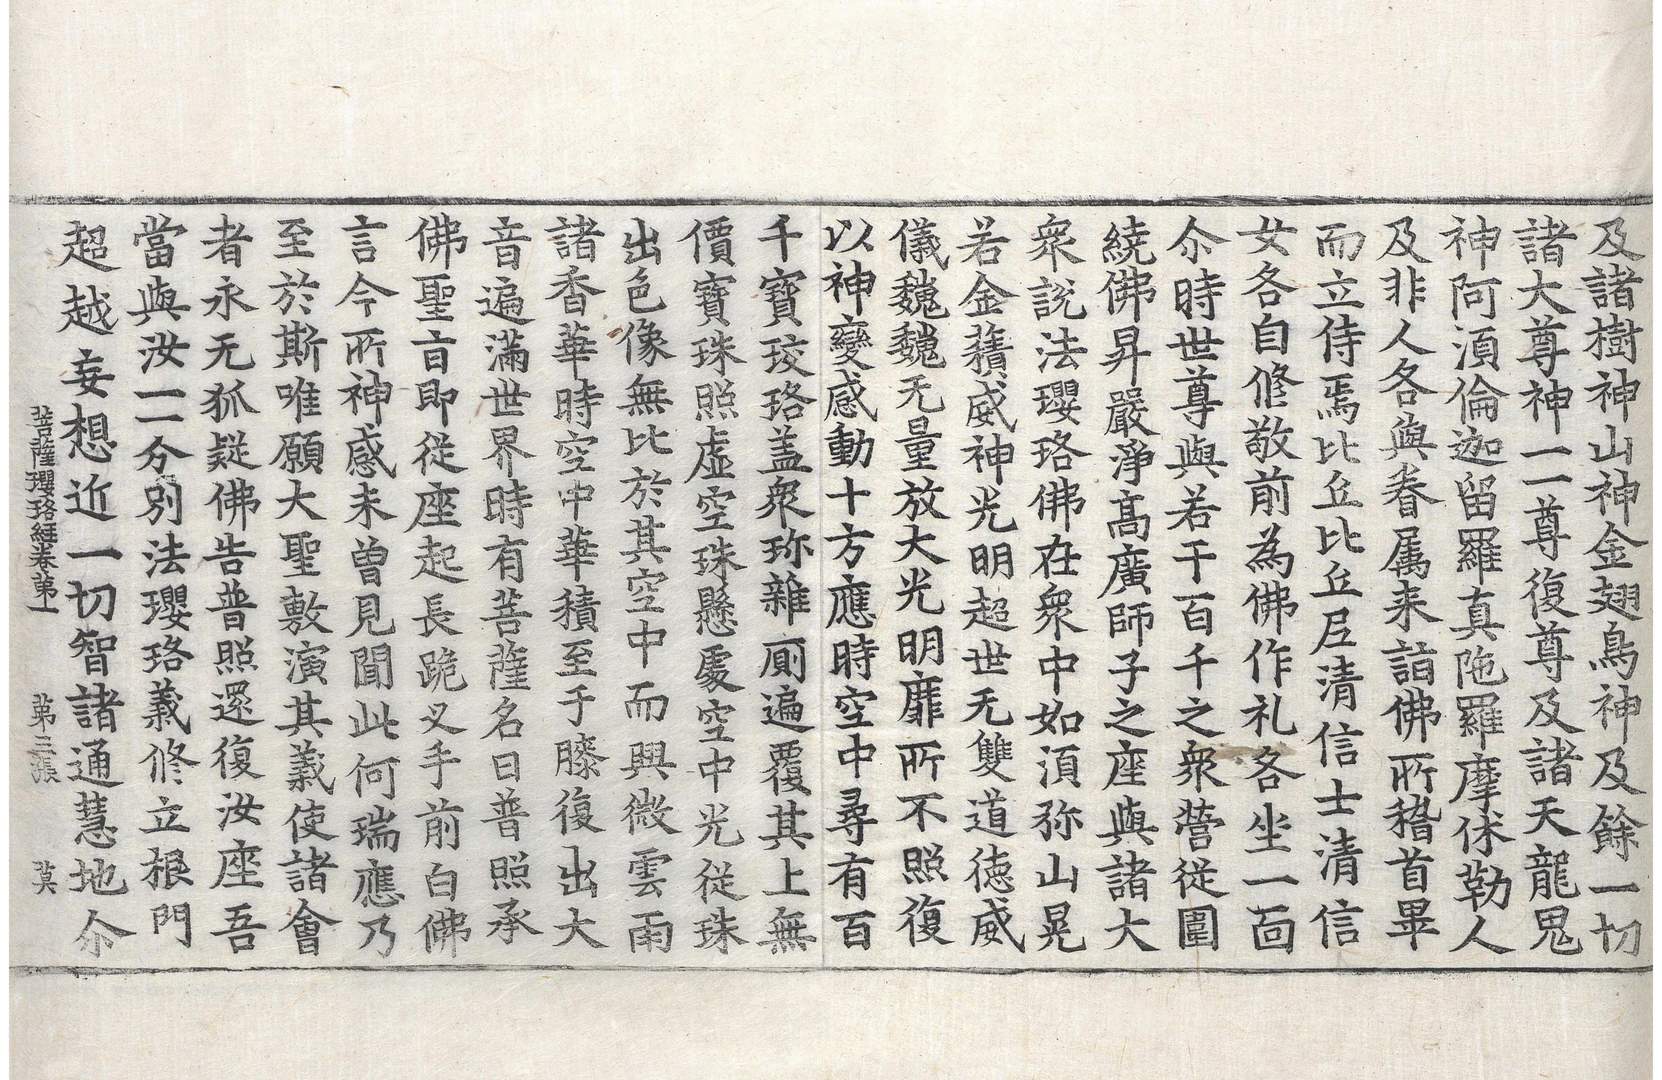 及諸樹神山神金翅鳥神及餘一切
諸大尊神一一尊復尊及諸天龍鬼
神阿湏倫迦留羅真陁羅摩休勒人
及非人各與眷属来詣佛所稽首畢
而立侍焉比丘比丘尼清信士清信
女各自修敬前為佛作礼各坐一面
尒時世尊與若干百千之衆營従圍
繞佛昇嚴淨髙廣師子之座與諸大
衆說法瓔珞佛在衆中如湏弥山晃
若金積威神光明超世无雙道徳威
儀魏魏无量放大光明靡所不照復
以神變感動十方應時空中尋有百
千寶珓珞盖衆珎雜厠遍覆其上無
價寶珠照虚空珠懸處空中光従珠
出色像無比於其空中而興微雲雨
諸香華時空中華積至于膝復出大
音遍滿世界時有菩薩名曰普照承
佛聖旨即従座起長跪叉手前白佛
言今所神感未曽見聞此何瑞應乃
至於斯唯願大聖敷演其義使諸會
者永无狐疑佛告普照還復汝座吾
當與汝一一分別法瓔珞義修立根門
超越妄想近一切智諸通慧地尒
菩薩瓔珞経卷第一 第三張 莫